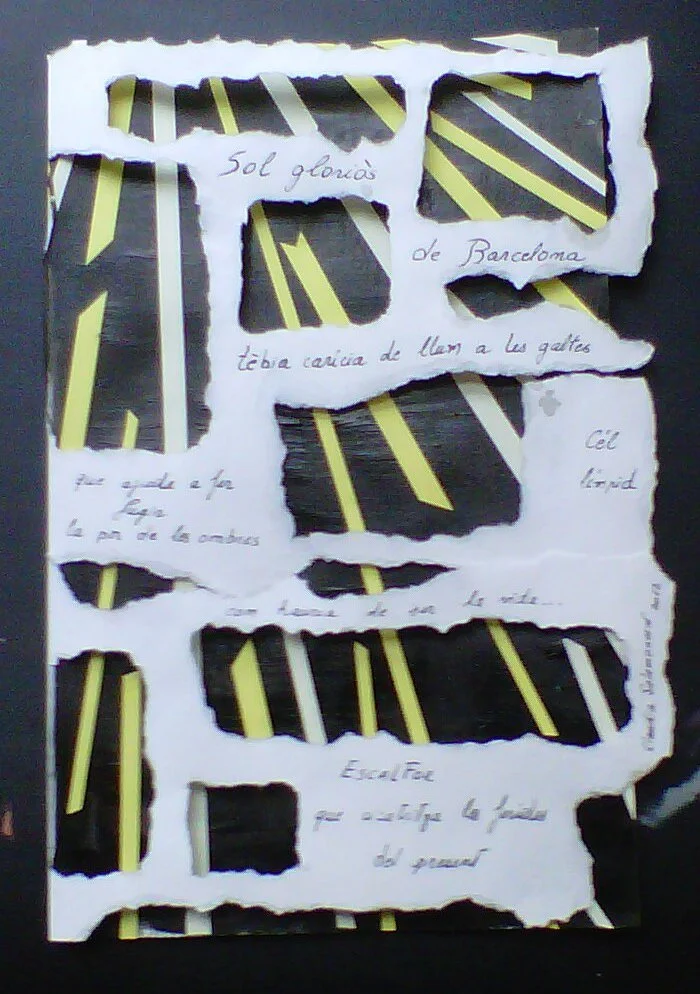 Sol gloriós
de Barcelona
tèbia carícia de llum a les galtes
Cél
límpid
que ajuda a fer
fugir
la por de les ombres
com hauria de ser la vida...
Escalfor
que cicatritza les ferides
del present